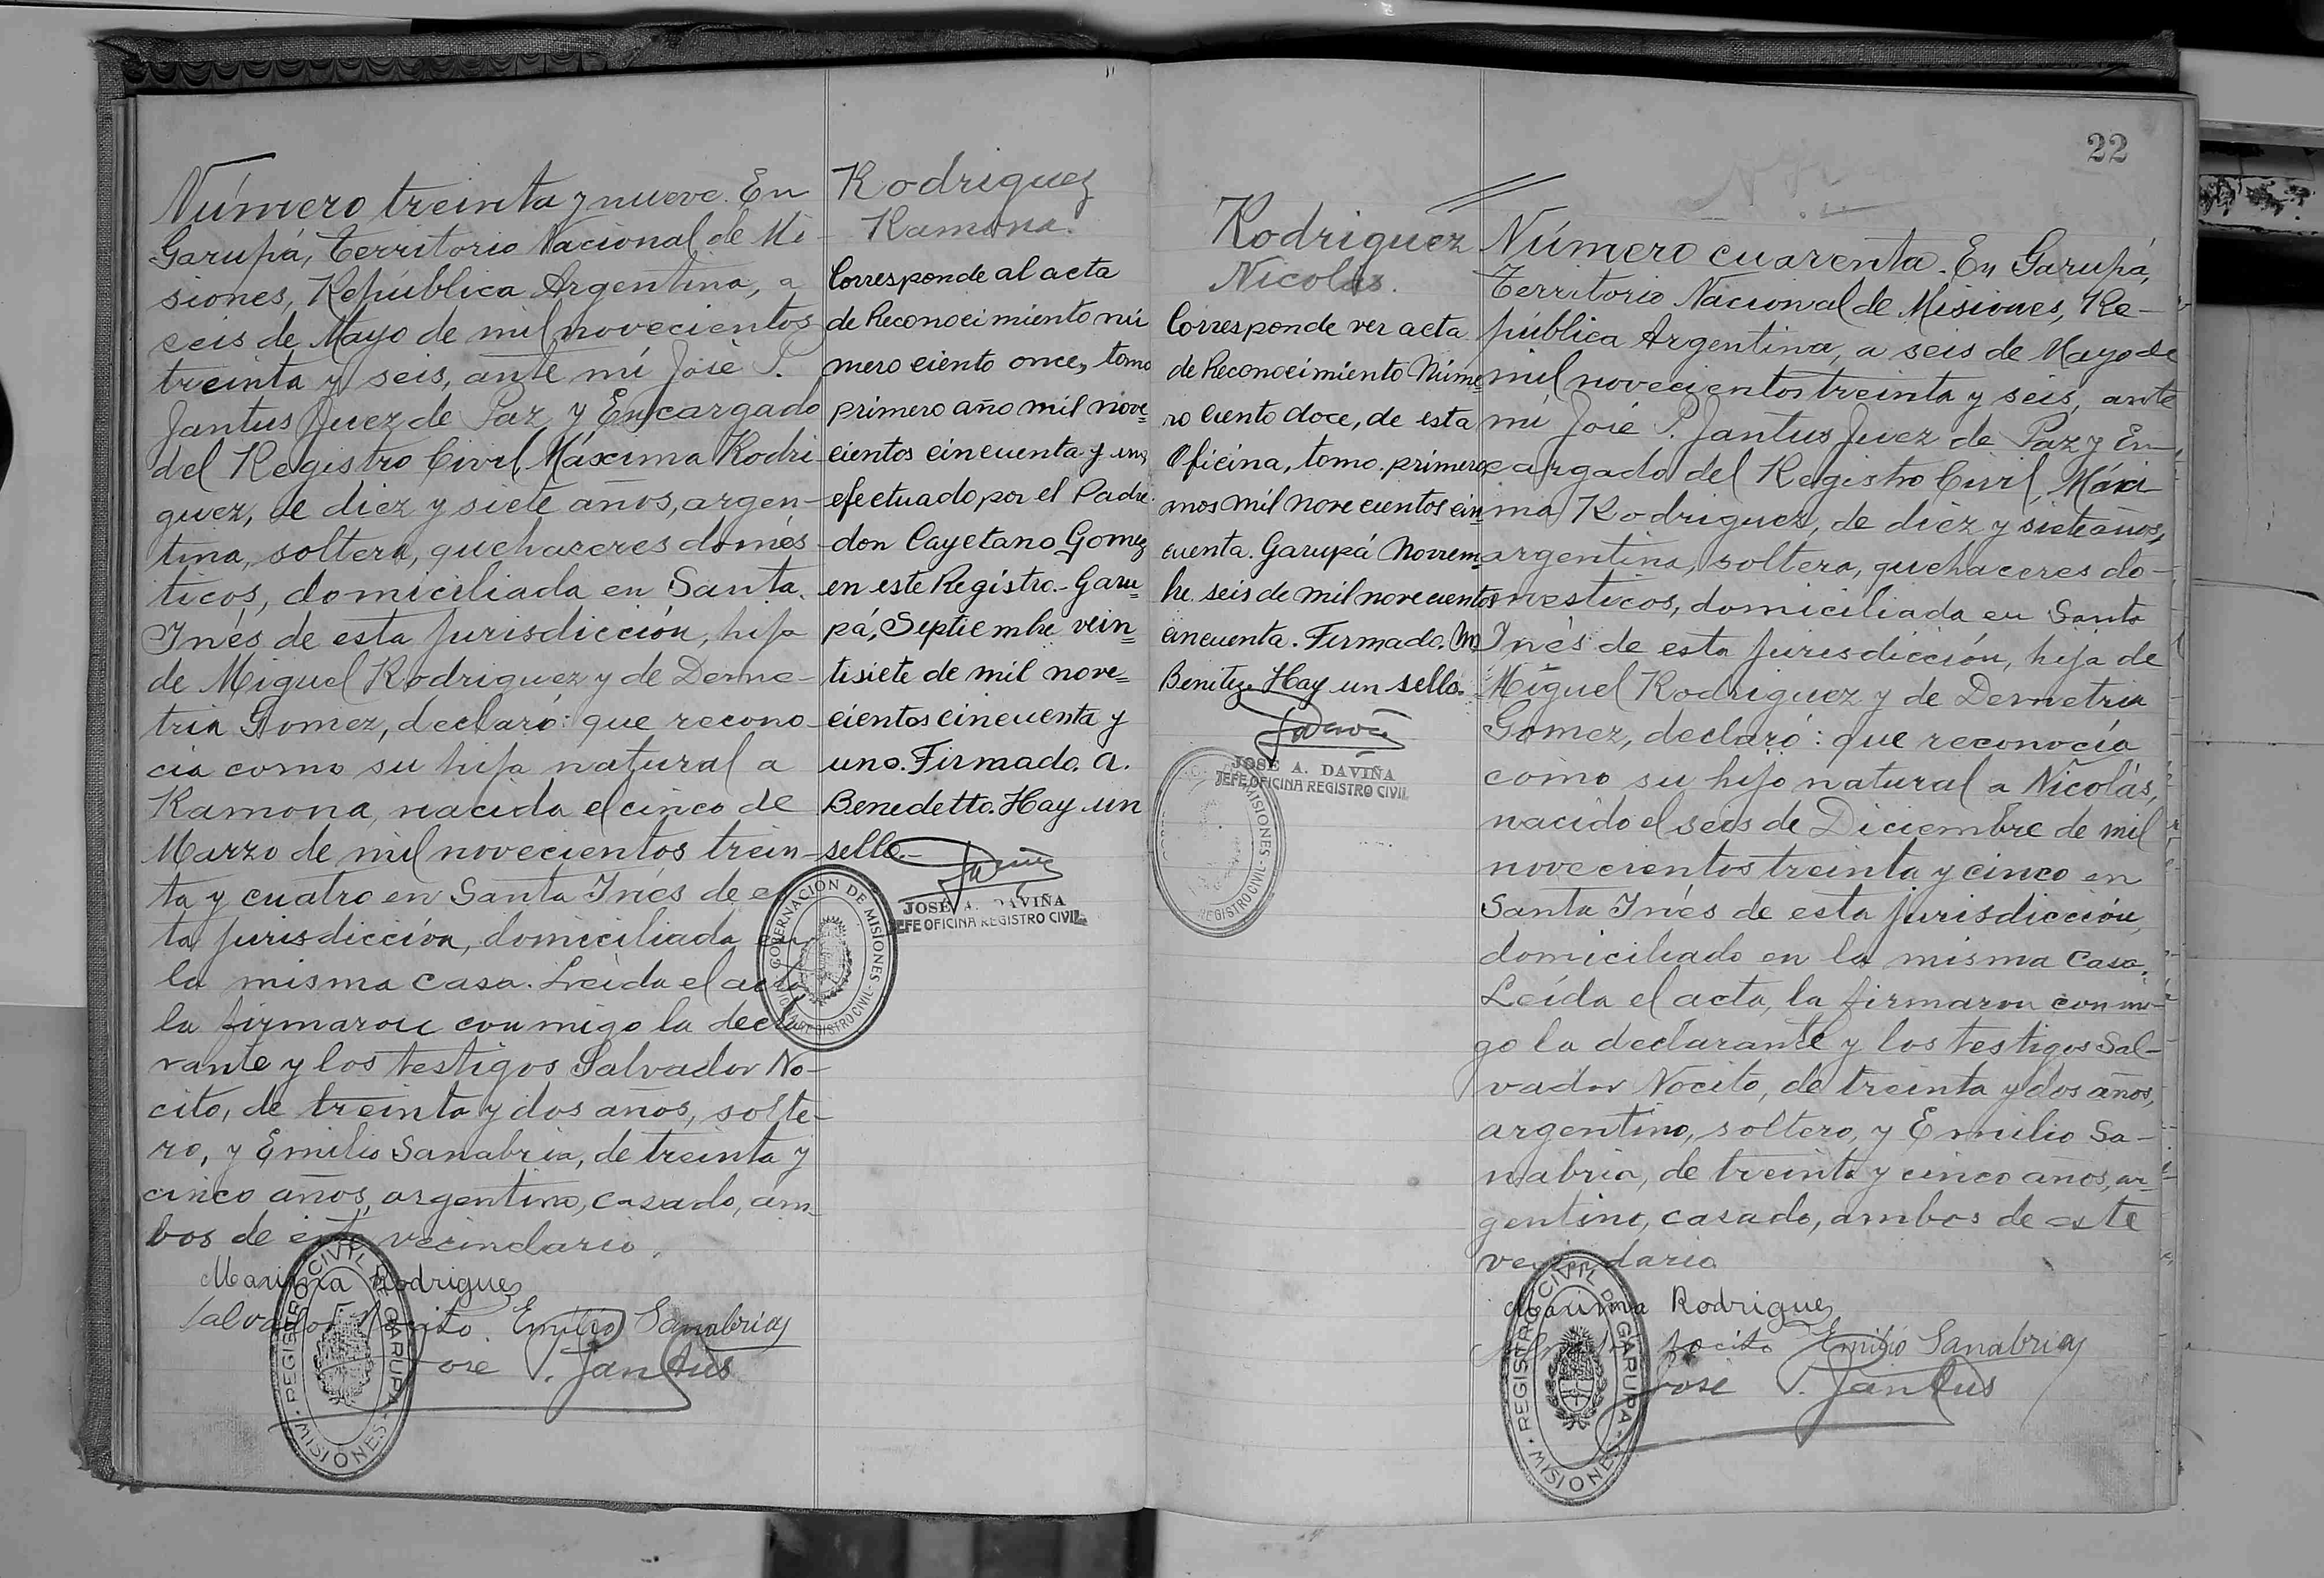 Número treinta y nueve. En
Garupá, Territorio Nacional de Mi-
siones, República Argentina, a
seis de Mayo de mil novecientos
treinta y seis, ante mí José P.
Jantus Juez de Paz y Encargado
del Registro Civil, Máxima Rodri
guez, de diez y siete años, argen-
tina, soltera, quehaceres domés
ticos, domiciliada en Santa
Inés de esta jurisdicción, hija
de Miguel Rodriguez y de Deme-
tria Gomez, declaró: que recono
cía como su hija natural a
Ramona, nacida el cinco de
Marzo de mil novecientos trein-
ta y cuatro en Santa Inés de es
ta jurisdicción, domiciliada en
la misma casa. Leída el acta
la firmaron conmigo la decla
rante y los testigos Salvador No-
cito, de treinta y dos años, solte-
ro, y Emilio Sanabria, de treinta y
cinco años, argentino, casado, am-
bos de este vecindario.
Maxima Rodrigues
Salvador Nocito. Emilio Sanabria
José P. Jantus
REGISTRO CIVIL DE GARUPA
MISIONES
Rodriguez
Ramona.
Corresponde al acta
de Reconocimiento nú
mero ciento once, tomo
primero año mil nove=
cientos cincuenta y uno,
efectuado por el Padre
don Cayetano Gomez
en este Registro.- Garu=
pá, Septiembre vein=
tisiete de mil nove=
cientos cincuenta y
uno. Firmado. A.
Benedetto. Hay un
sello.-
JOSÉ A. DAVIÑA
JEFE OFICINA REGISTRO CIVIL
GOBERNACION DE MISIONES
REGISTRO CIVIL
22
Rodriguez
Nicolas.
Corresponde ver acta
de Reconocimiento Núme=
ro ciento doce, de esta
Oficina, tomo primero
años mil novecientos cin=
cuenta. Garupá Noviem=
bre seis de mil novecientos
cincuenta. Firmado. M.
Benitez. Hay un sello.
JOSÉ A. DAVIÑA
JEFE OFICINA REGISTRO CIVIL
MISIONES
REGISTRO CIVIL
Número cuarenta. En Garupá,
Territorio Nacional de Misiones, Re-
pública Argentina, a seis de Mayo de
mil novecientos treinta y seis, ante
mí José P. Jantus Juez de Paz y En-
cargado del Registro Civil, Máxi
ma Rodriguez, de diez y siete años,
argentina, soltera, quehaceres do-
mesticos, domiciliada en Santa
Inés de esta jurisdicción, hija de
Miguel Rodriguez y de Demetria
Gomez, declaró: que reconocía
como su hijo natural a Nicolás,
nacido el seis de Diciembre de mil
novecientos treinta y cinco en
Santa Inés de esta jurisdicción,
domiciliado en la misma casa.
Leída el acta, la firmaron conmi-
go la declarante y los testigos Sal-
vador Nocito, de treinta y dos años,
argentino, soltero, y Emilio Sa-
nabria, de treinta y cinco años, ar-
gentino, casado, ambos de este
vecindario
Maxima Rodrigues
Nocito Emilio Sanabria
José P. Jantus
REGISTRO CIVIL DE GARUPA
MISIONES